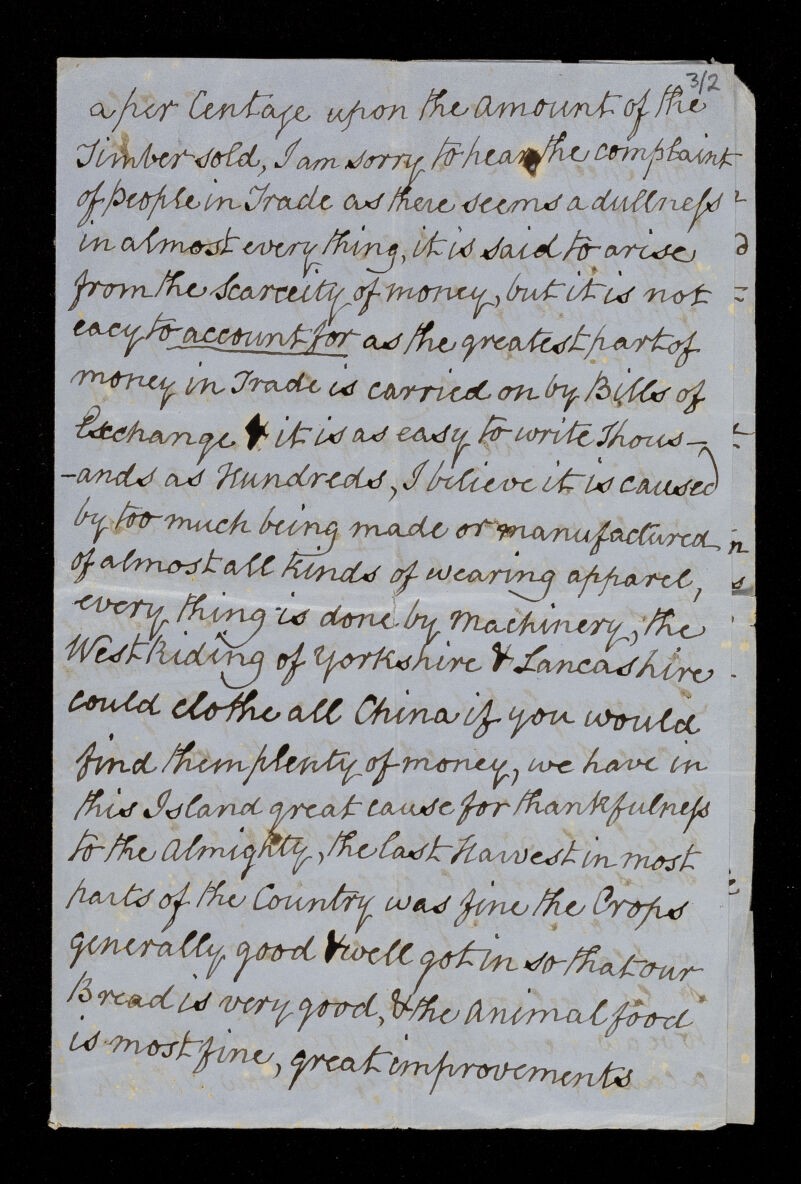 3/2
a per Centage upon the amount of the
Timber sold, I am sorry to hear the complaint
of People in Trade as there seems a dullneſs
in almost every thing, it is said to arise
from the Scarceity of money, but it is not
eacy to account for as the greatest part of
money in Trade is carried on by Bills of
Exchange & it is as easy to write Thous-
-ands as Hundreds, I believe it is caused
by too much being made or manufactured
of almost all kinds of wearing apparel,
every thing is done by Machinery, the
West Riding of Yorkshire & Lancashire
could clothe all China if you would
find them plenty of money, we have in
this Island great cause for thankfulneſs
to the Almighty, the last Harvest in most
parts of the Country was fine the Crops
generally good & well got in so that our
Bread is very good, & the animal food
is most fine, great improvements